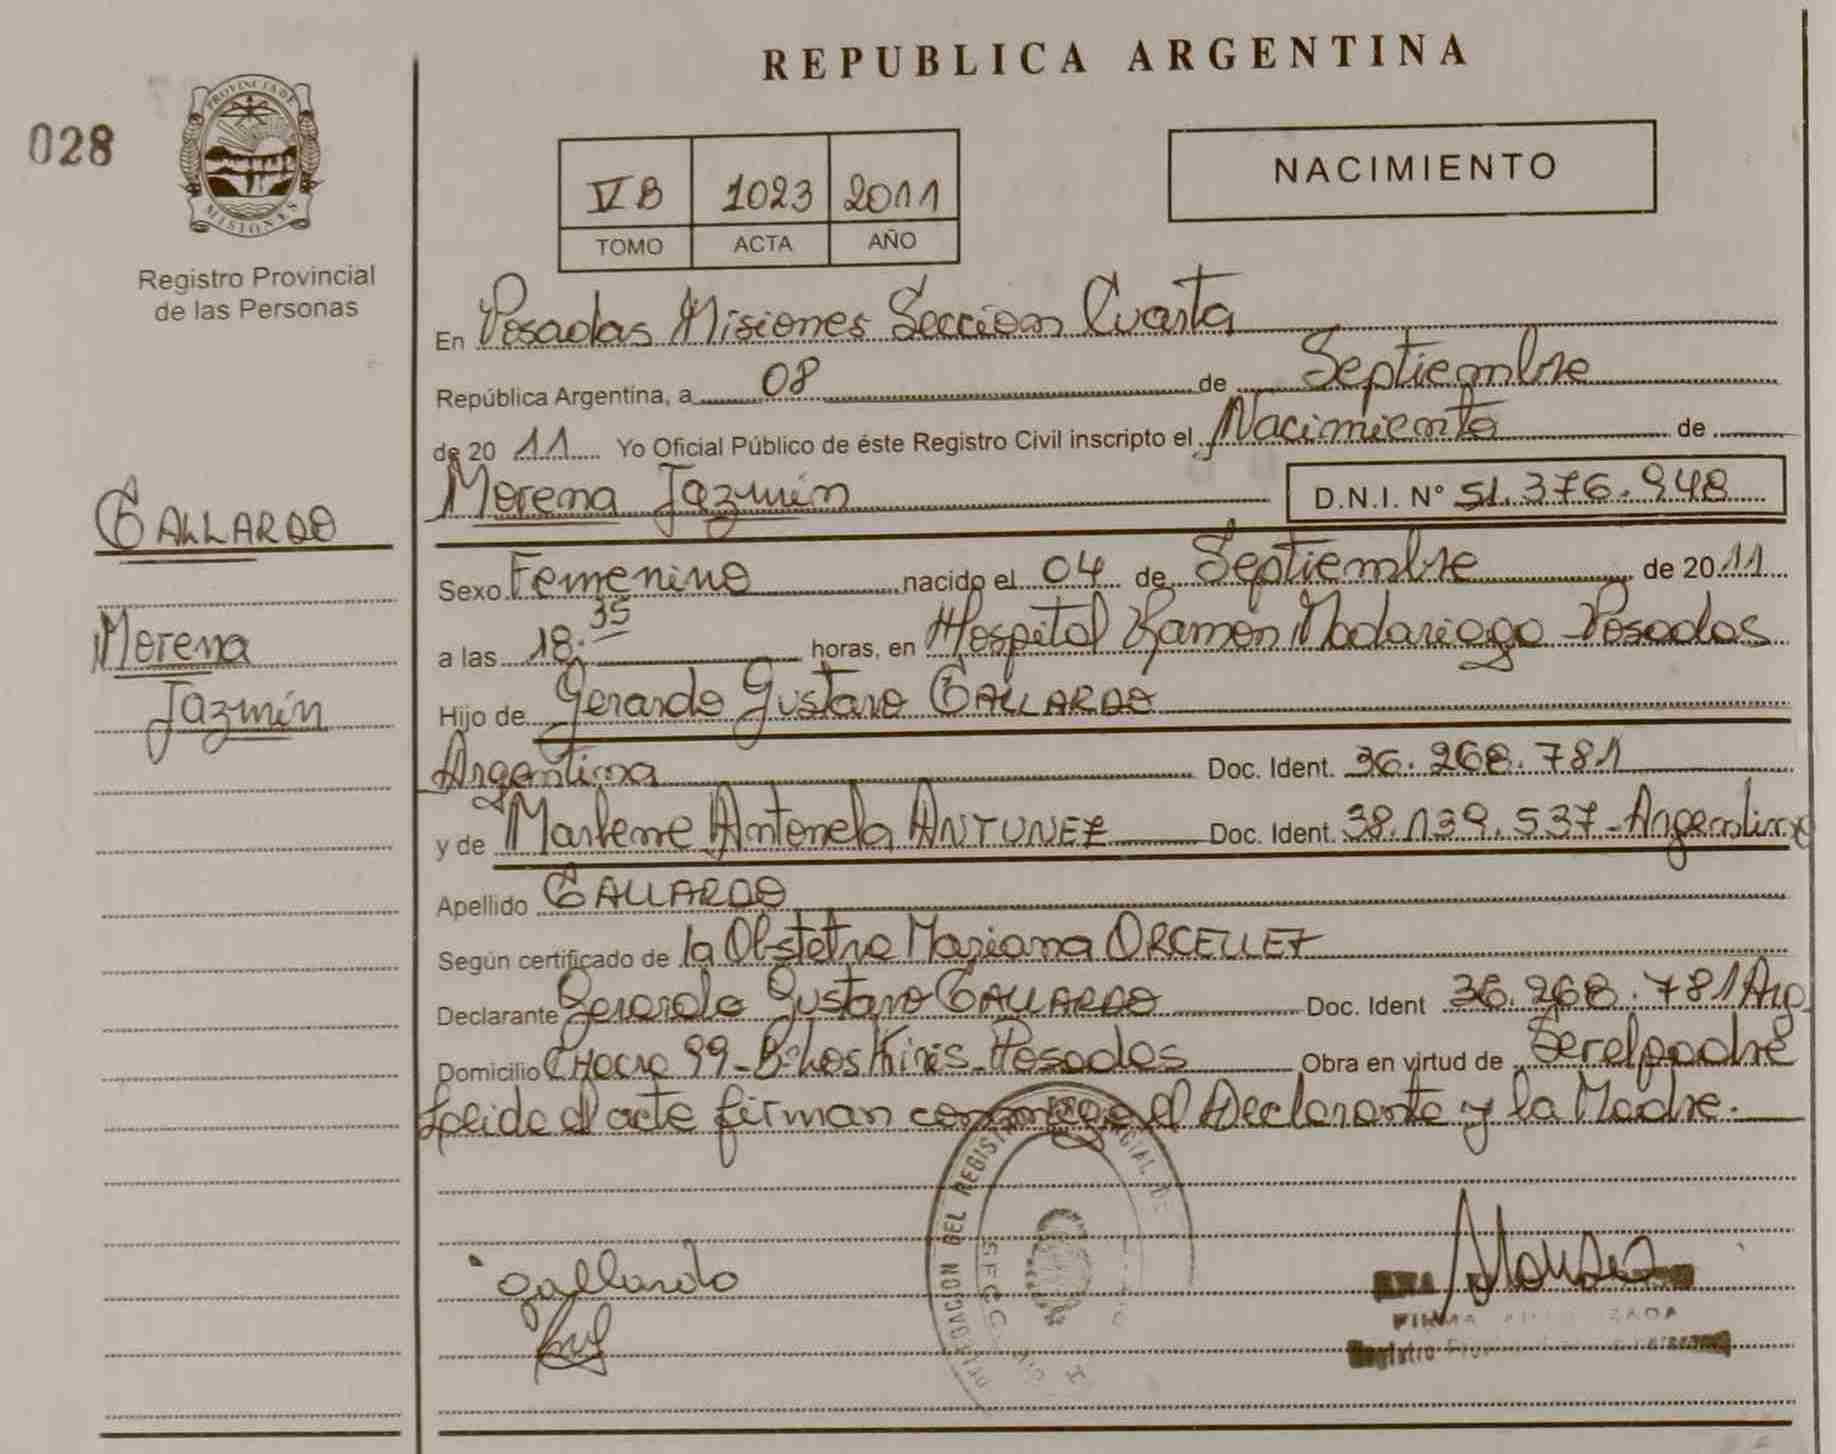 REPUBLICA ARGENTINA
028
PROVINCIA DE
MISIONES
Registro Provincial
de las Personas
VB 1023 2011
TOMO ACTA AÑO
NACIMIENTO
En Posadas Misiones Seccion Cuarta
República Argentina, a 08 de Septiembre
de 2011 Yo Oficial Público de éste Registro Civil inscripto el Nacimiento de
Morena Jazmín D.N.I. N° 51.376.948
GALLARDO
Morena
Jazmín
Sexo Femenino nacido el 04 de Septiembre de 2011
a las 18.35 horas, en Hospital Ramon Madariaga Posadas
Hijo de Gerardo Gustavo GALLARDO
Argentina Doc. Ident. 36.268.781
y de Marlene Antonela ANTUNEZ Doc. Ident. 38.139.537 - Argentina
Apellido GALLARDO
Según certificado de la Obstetra Mariana ORCELLET
Declarante Gerardo Gustavo GALLARDO Doc. Ident 36.268.781 Arg
Domicilio CHacra 99 - Bº Los Kiris - Posadas Obra en virtud de Ser el padre
Leida el acta firman conmigo el Declarante y la Madre.
DELEGACION DEL REGISTRO
gallardo
FIRMA
Registro